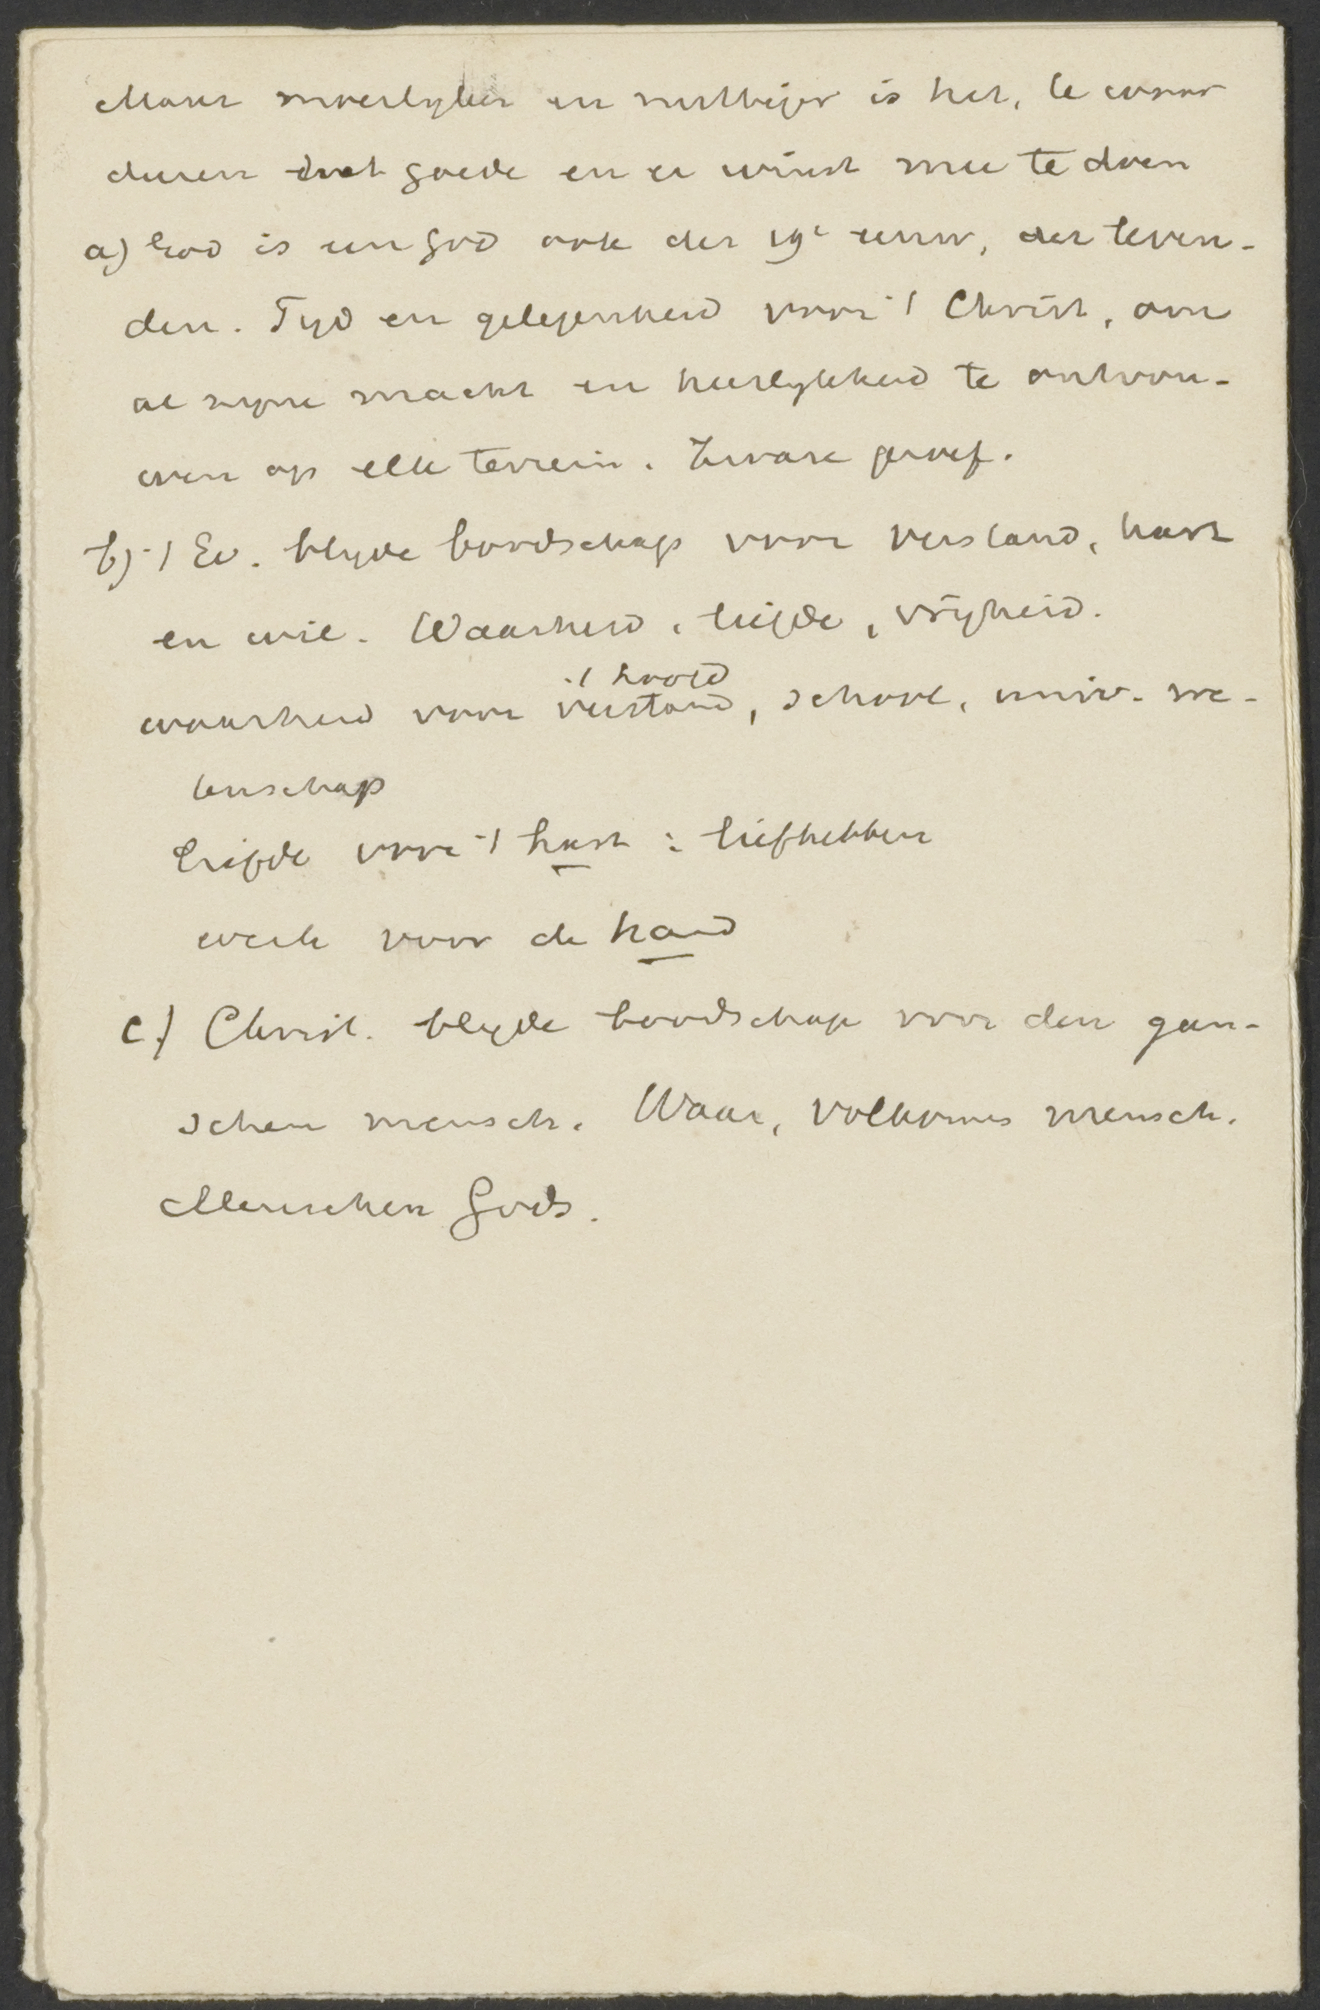 Maar moeilijker en nuttiger is het, te waar
deeren het goede en er winst mee te doen
a) God is een God ook der 19e eeuw, der leven-
den. Tijd en gelegenheid voor 't Christ, om
al zijne macht en heerlijkheid te ontvou-
wen op elk terrein. Zware proef.
b) 't Ev. blijde boodschap voor verstand, hart
en wil. Waarheid, liefde, vrijheid.
't hoofd
waarheid voor verstand, school, univ. we-
tenschap
liefde voor 't hart : liefhebben
werk voor de hand
c) Christ. blijde boodschap voor den gan-
schen mensch. Waar, volkomen mensch.
Menschen Gods.